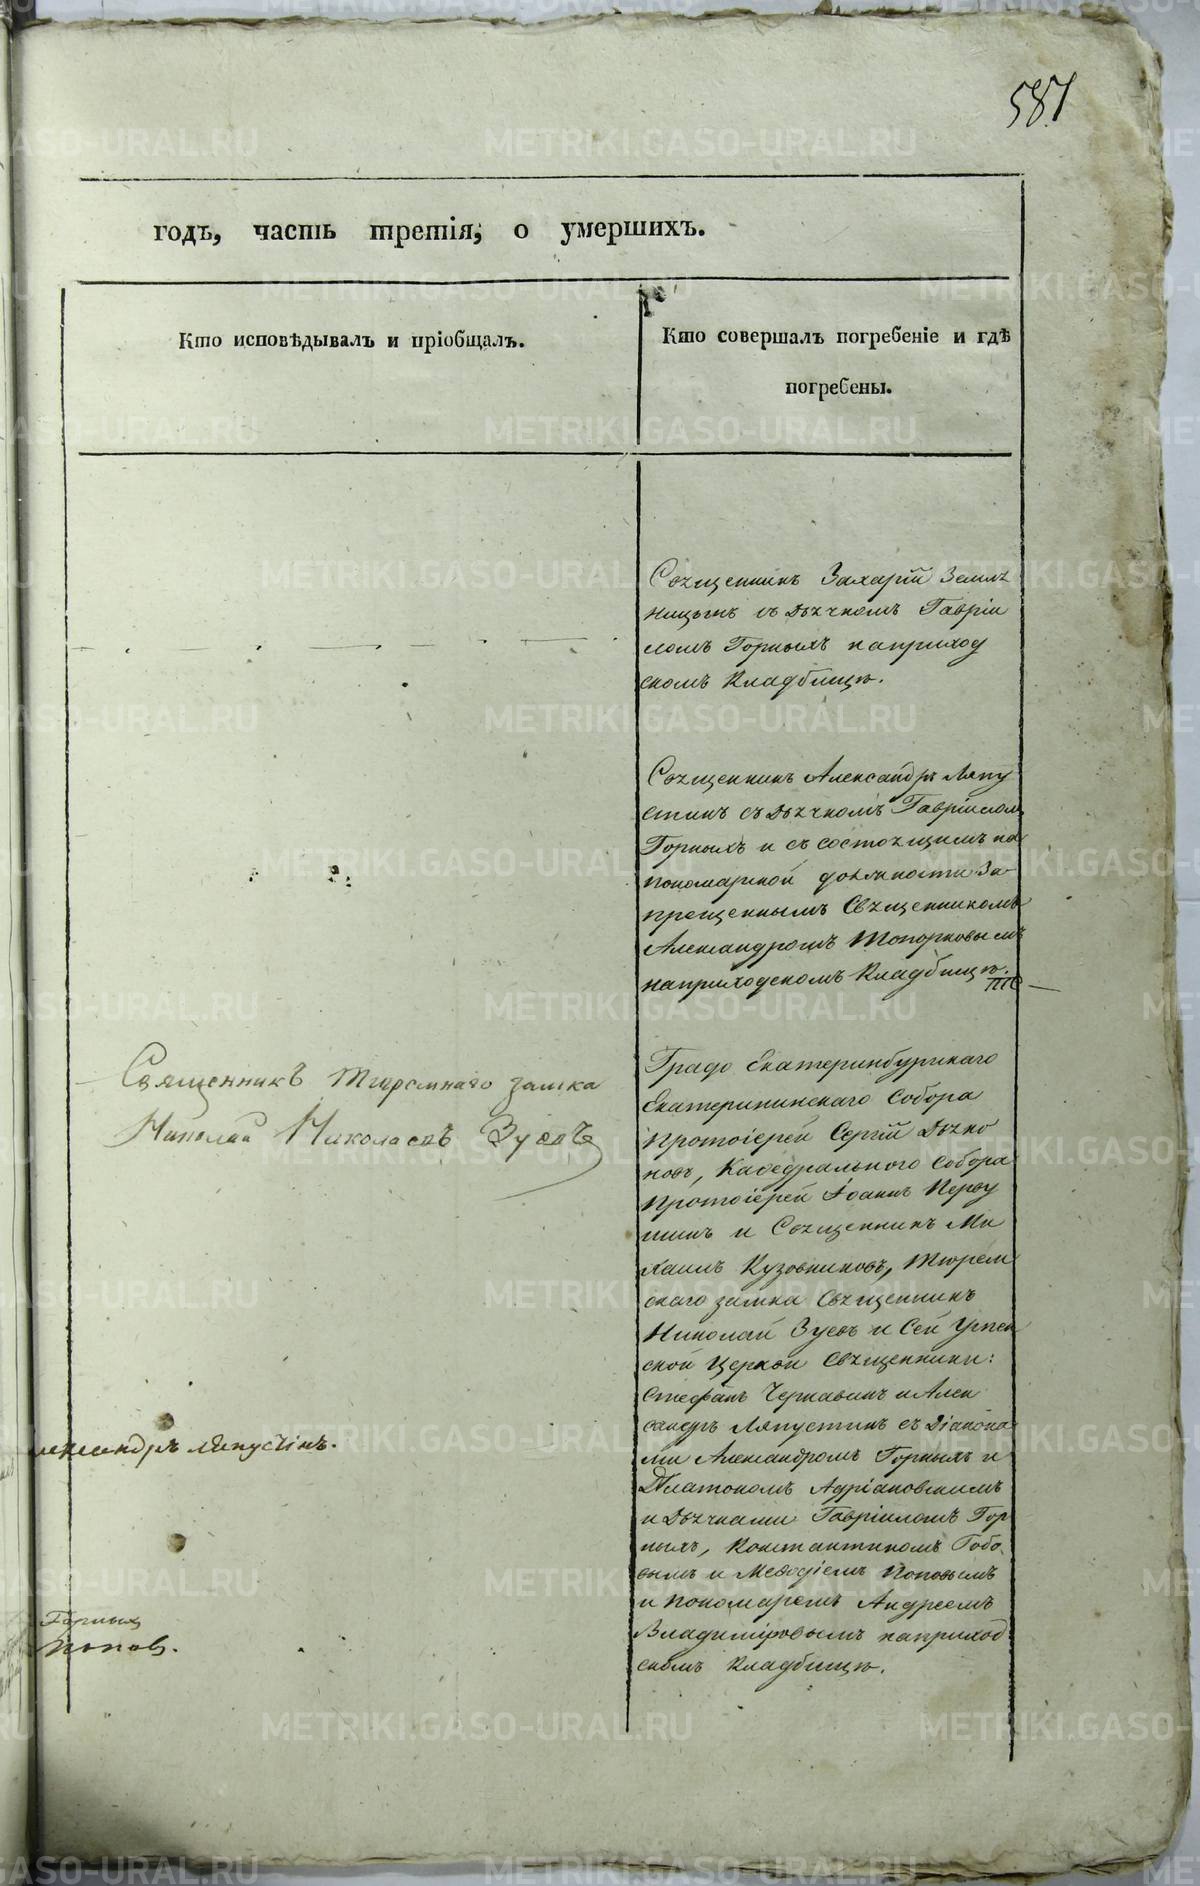 587
годъ, часть третія, о умершихъ.
Кто исповѣдывалъ и пріобщалъ.
Кто совершалъ погребеніе и гдѣ
погребены.
Священникъ Захарій Земля
ницынъ съ Дьячкомъ Гавріи
ломъ Горныхъ наприход
скомъ Кладбищѣ.
Священникъ Александръ Ляпу
стинъ съ Дьячкомъ Гавріилом
Горныхъ и съ состоящимъ на
пономарской должности За-
прещеннымъ Священникомъ
Александромъ Топорковымъ
наприходскомъ Кладбищѣ.
Священникъ Тюремнаго замка
Николай Николаевъ Зуевъ
Градо Екатеринбургскаго
Екатерининскаго Собора
Протоіерей Сергій Дьяко
новъ, Кафедральнаго Собора
Протоіерей Іоаннъ Перву
шинъ и Священникъ Ми
хаилъ Кузовниковъ, Тюрем
скаго замка Священникъ
Николай Зуевъ и Сей Успен
ской Церкви Священники:
Стефанъ Чернавинъ и Алек
сандръ Ляпустинъ съ Діакона
ми Александромъ Горныхъ и
Платономъ Адріановскимъ
и Дьячками Гавріиломъ Гор
ныхъ, Константиномъ
и Меѳодіемъ Поповымъ
и Пономаремъ Андреемъ
Владиміровымъ наприход
скомъ Кладбищѣ.
лександръ Ляпустинъ.
Горных
Попов.
METRIKI.GASO-URAL.RU